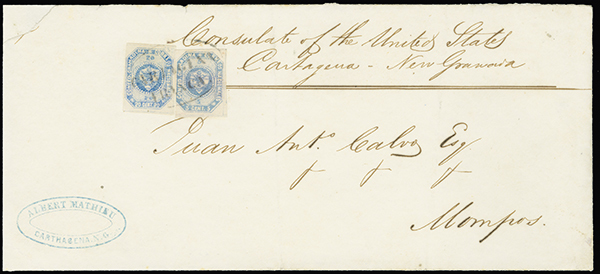 Consulate of the United States
Cartagena - New Granada
Juan Anto. Calvo Esq
Mompos.
ALBERT MATHIEU
CARTHAGENA, N.G
20
20 CENT.
5
5 CENT.